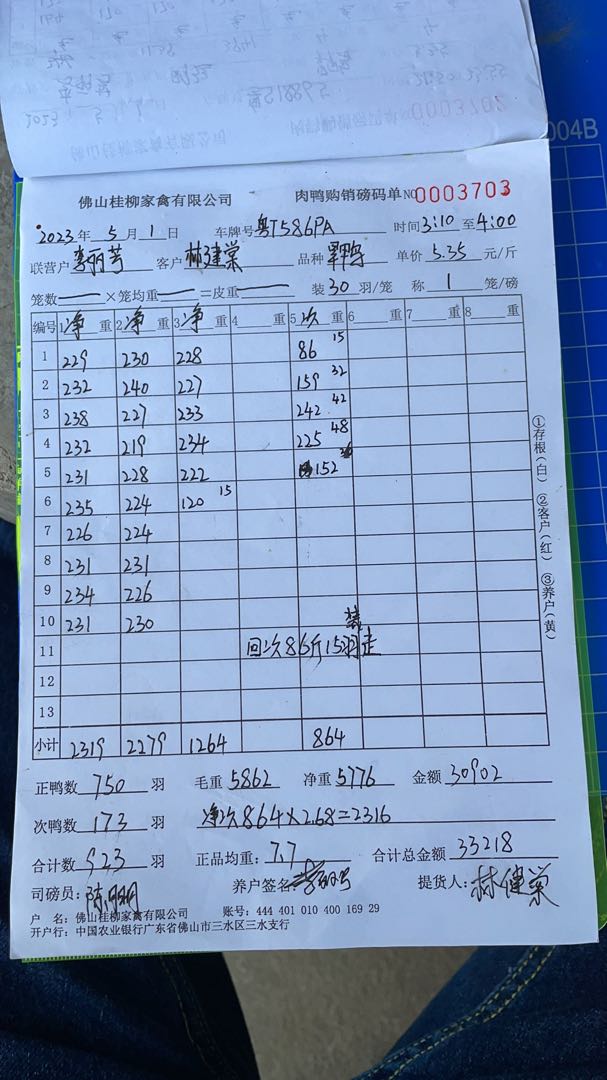 佛山桂柳家禽有限公司 肉鸭购销磅码单 NO 0003703
2023年5月1日 车牌号 粤T586PA 时间3:10至4:00
联营户 李丽芳 客户 林健棠 品种 单价 5.35 元/斤
笼数 ×笼均重 =皮重 装30羽/笼 称1笼/磅
编号 1净重 2净重 3净重 4重 5次重 6重 7重 8重
1 229 230 228 86 15
2 232 240 227 159 32
3 238 227 233 242 42
4 232 219 234 225 48
5 231 228 222 152
6 235 224 120 15
7 226 224
8 231 231
9 234 226
10 231 230 装
11 回次86斤15羽走
12
13
小计 2319 2279 1264 864
正鸭数 750 羽 毛重 5862 净重 5776 金额 30902
次鸭数 173 羽 净次864×2.68=2316
合计数 923 羽 正品均重: 7.7 合计总金额 33218
司磅员: 养户签名 提货人: 林健棠
户 名: 佛山桂柳家禽有限公司 账号: 444 401 010 400 169 29
开户行: 中国农业银行广东省佛山市三水区三水支行
①存根(白) ②客户(红) ③养户(黄)
0003702
004B